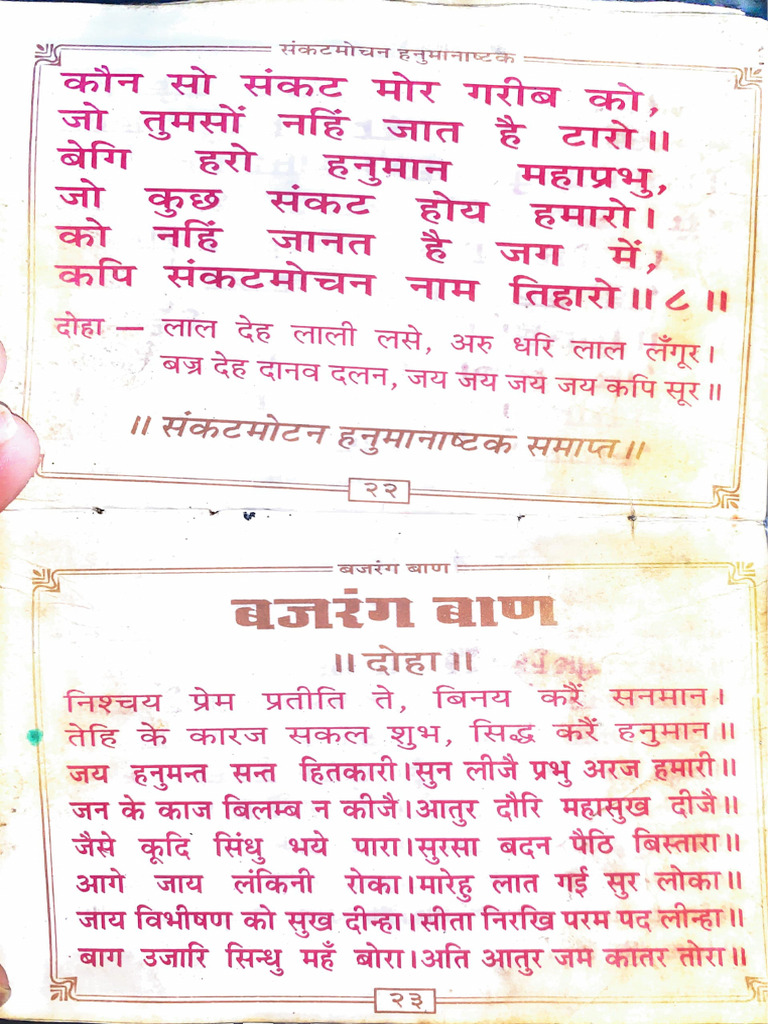 संकटमोचन हनुमानाष्टक
कौन सो संकट मोर गरीब को,
जो तुमसों नहिं जात है टारो॥
बेगि हरो हनुमान महाप्रभु,
जो कुछ संकट होय हमारो।
को नहिं जानत है जग में,
कपि संकटमोचन नाम तिहारो॥८॥
दोहा — लाल देह लाली लसे, अरु धरि लाल लँगूर।
बज्र देह दानव दलन, जय जय जय जय कपि सूर॥
॥ संकटमोटन हनुमानाष्टक समाप्त॥
२२
बजरंग बाण
बजरंग बाण
॥दोहा॥
निश्चय प्रेम प्रतीति ते, बिनय करैं सनमान।
तेहि के कारज सकल शुभ, सिद्ध करैं हनुमान॥
जय हनुमन्त सन्त हितकारी।सुन लीजै प्रभु अरज हमारी॥
जन के काज बिलम्ब न कीजै।आतुर दौरि महासुख दीजै॥
जैसे कूदि सिंधु भये पारा।सुरसा बदन पैठि बिस्तारा॥
आगे जाय लंकिनी रोका।मारेहु लात गई सुर लोका॥
जाय विभीषण को सुख दीन्हा।सीता निरखि परम पद लीन्हा॥
बाग उजारि सिन्धु महँ बोरा।अति आतुर जम कातर तोरा॥
२३